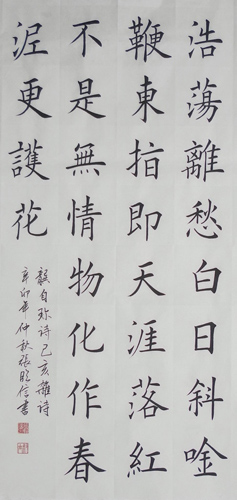 浩蕩離愁白日斜唫
鞭東指即天涯落紅
不是無情物化作春
泥更護花
龔自珍诗己亥雜诗
辛卯年仲秋張信書